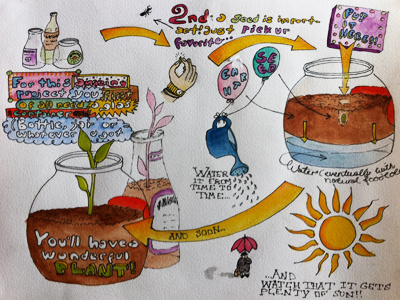 2nd: a seed is import-
ant! just pick ur
favorite...
PUT
IT
HERE!!
For this
project you first
of all need a glass
container
(Bottle, jar or
whatever u got
SEED
WATER
IT FROM
TIME TO
TIME...
Water eventually with
natural
AND SOON...
You'll have a
wonderful
PLANT!
...AND
WATCH THAT IT GETS
PLENTY OF SUN!!